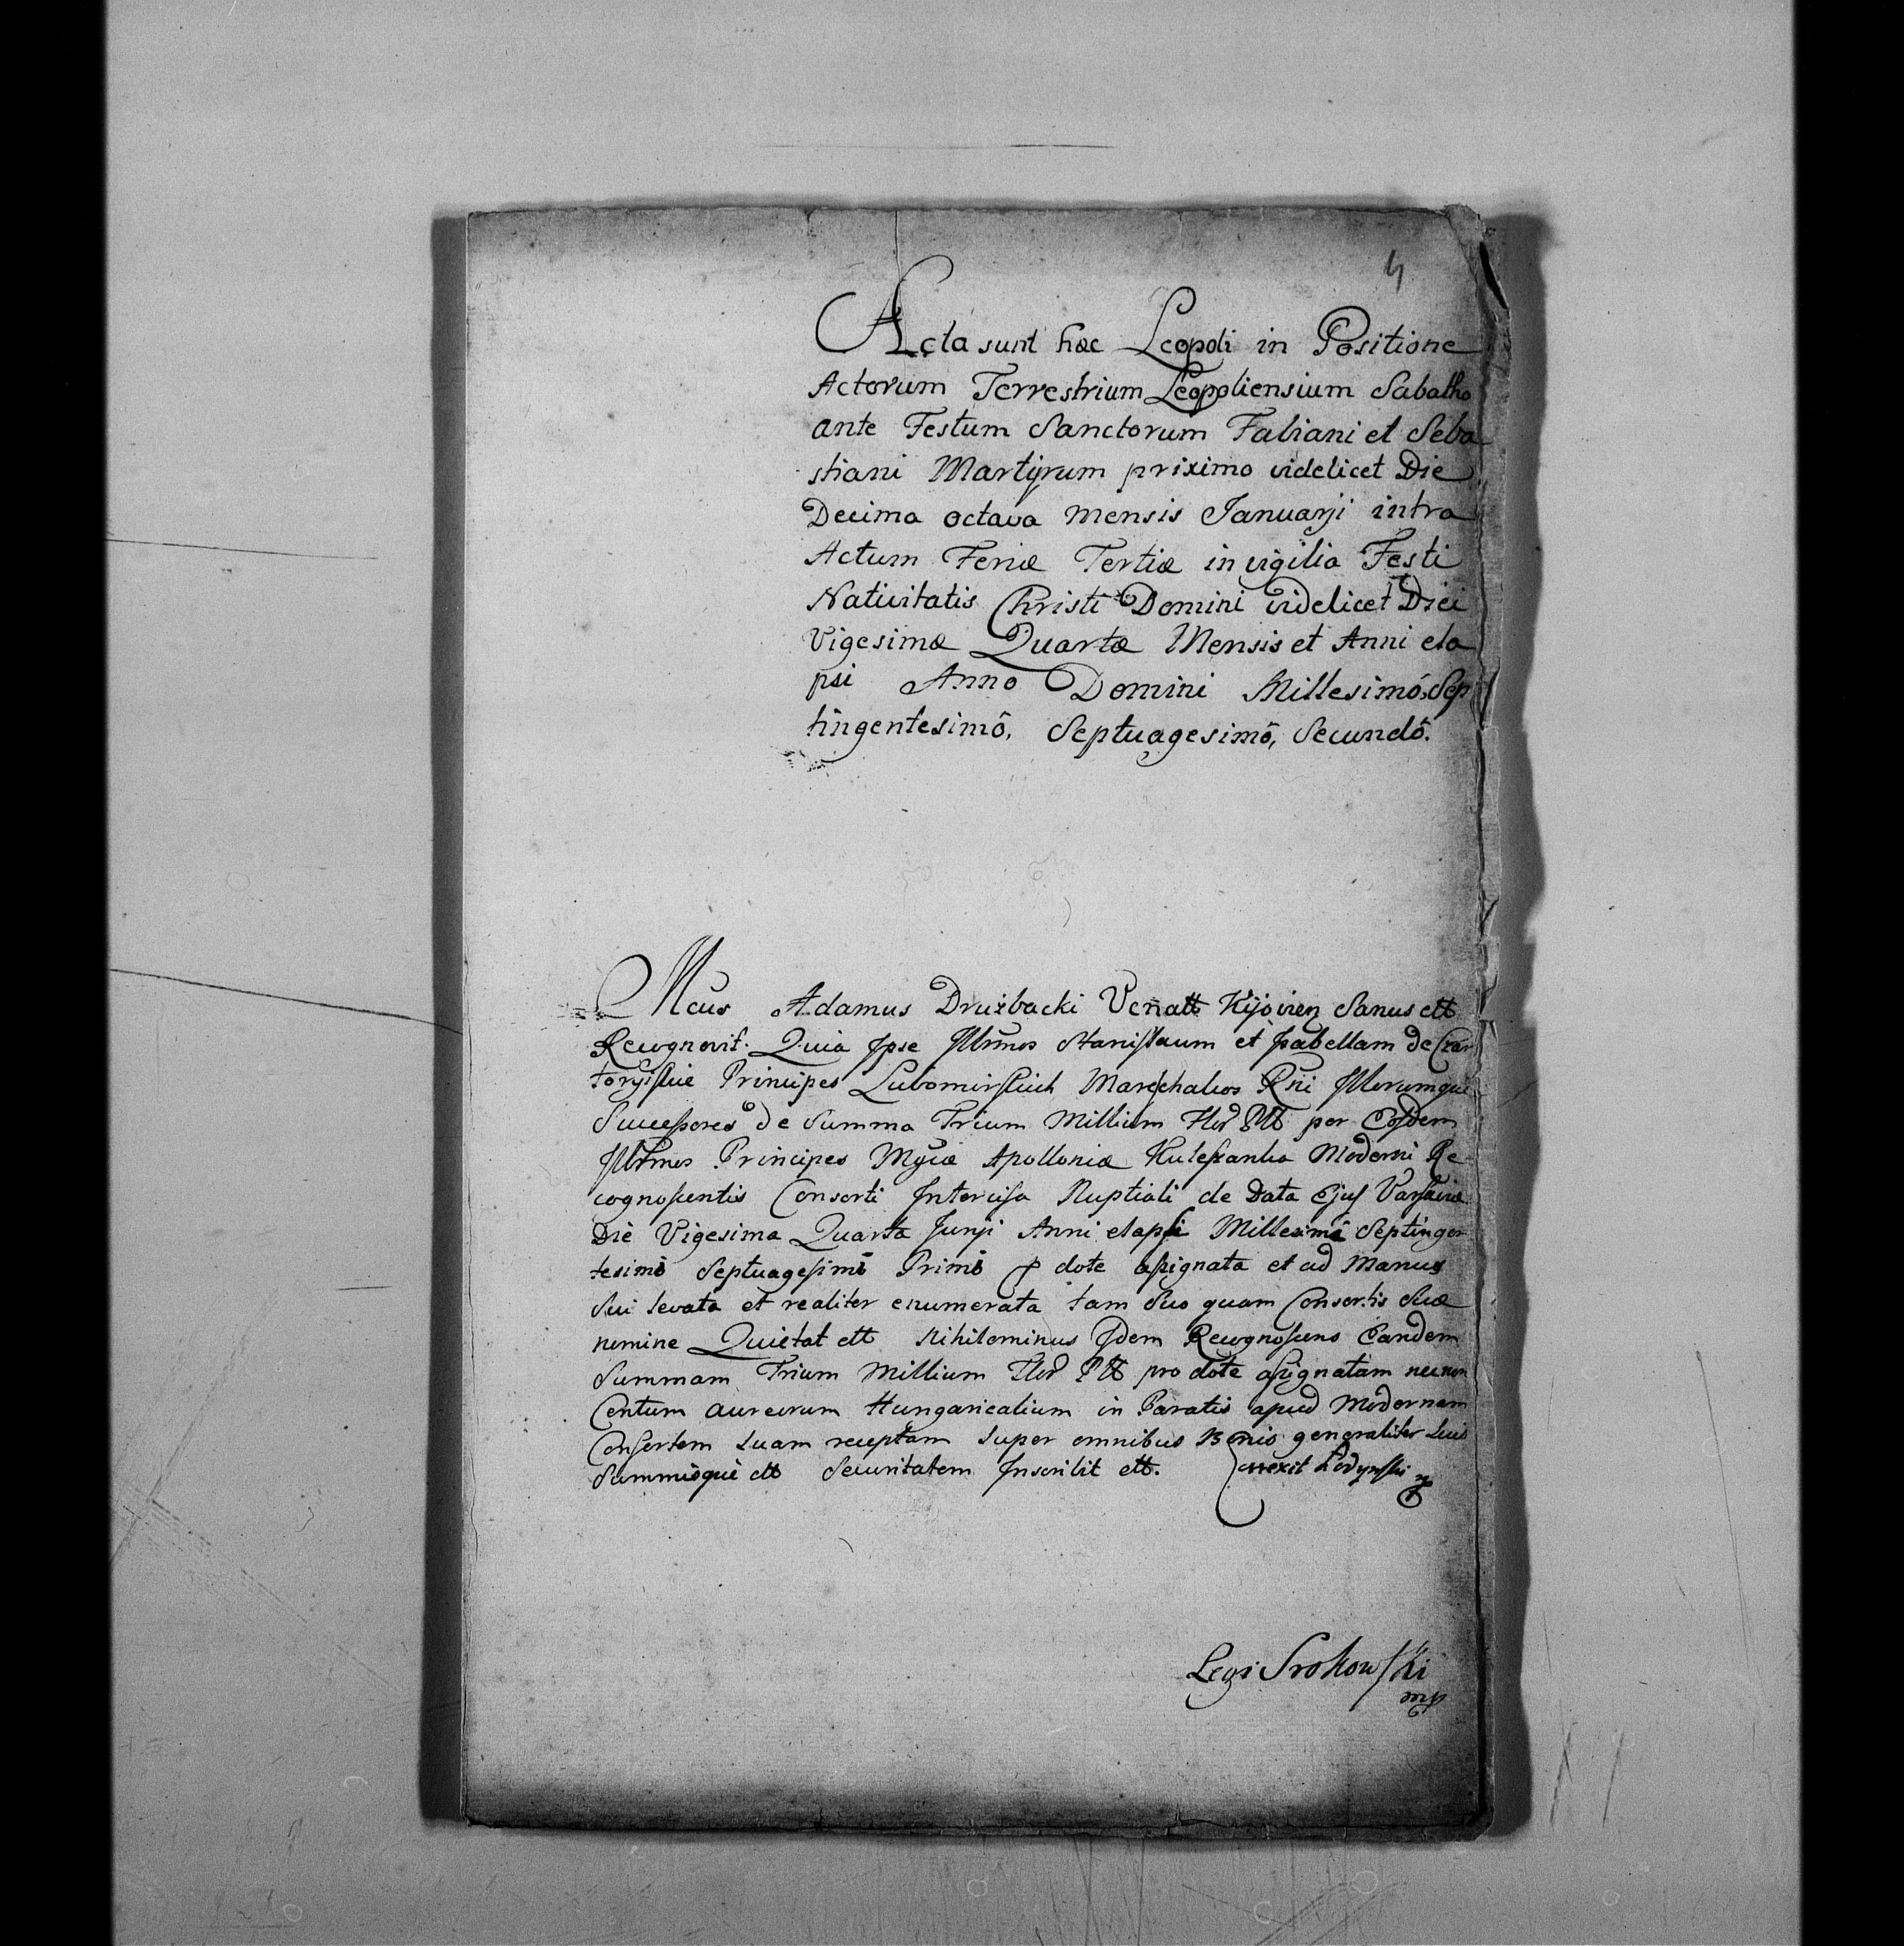 4
Acta sunt hæc Leopoli in Positione
Actorum Terrestrium Leopoliensium Sabatho
ante Festum Sanctorum Fabiani et Seba
stiani Martyrum priximo videlicet Die
Decima octava Mensis Januarji intra
Actum Feriæ Tertiæ in vigilia Festi
Nativitatis Christi Domini videlicet Diei
Vigesimæ Quartæ Mensis et Anni ela
psi Anno Domini Millesimô Sep
tingentesimô, Septuagesimô, Secundô.
Mcus Adamus Drużbacki Venatt Kijovien Sanus ett
Recognovit. Quia Ipse Illrmos Stanislaum et Isabellam de Czar
toryiskie Principes Lubomirskich Marschalcos Rni Illorumque
Successores de Summa Trium Millium Flor Pltt per Eosdem
Illrmos Principes Mgcæ Apolloniæ Kuleszanka Moderni Re
cognoscentis Consorti Intercisa Nuptiali de Data Ejus Varsaviæ
Die Vigesima Quarta Junji Anni elapsi Millesimô Septingen
tesimô Septuagesimô Primô p dote assignata et ad Manus
Sui levata et realiter enumerata tam Suo quam Consortis Suæ
nomine Quietat ett Nihilominus Idem Recognoscens Eandem
Summam Trium Millium Flor Pltt pro dote assignatam necnon
Centum aureorum Hungaricalium in Paratis apud Modernam
Consortem Suam receptam Super omnibus Bonis generaliter Suis
Summisque ett Securitatem Inscribit ett. Correxit Łodynski
Legi Srokowski
mp